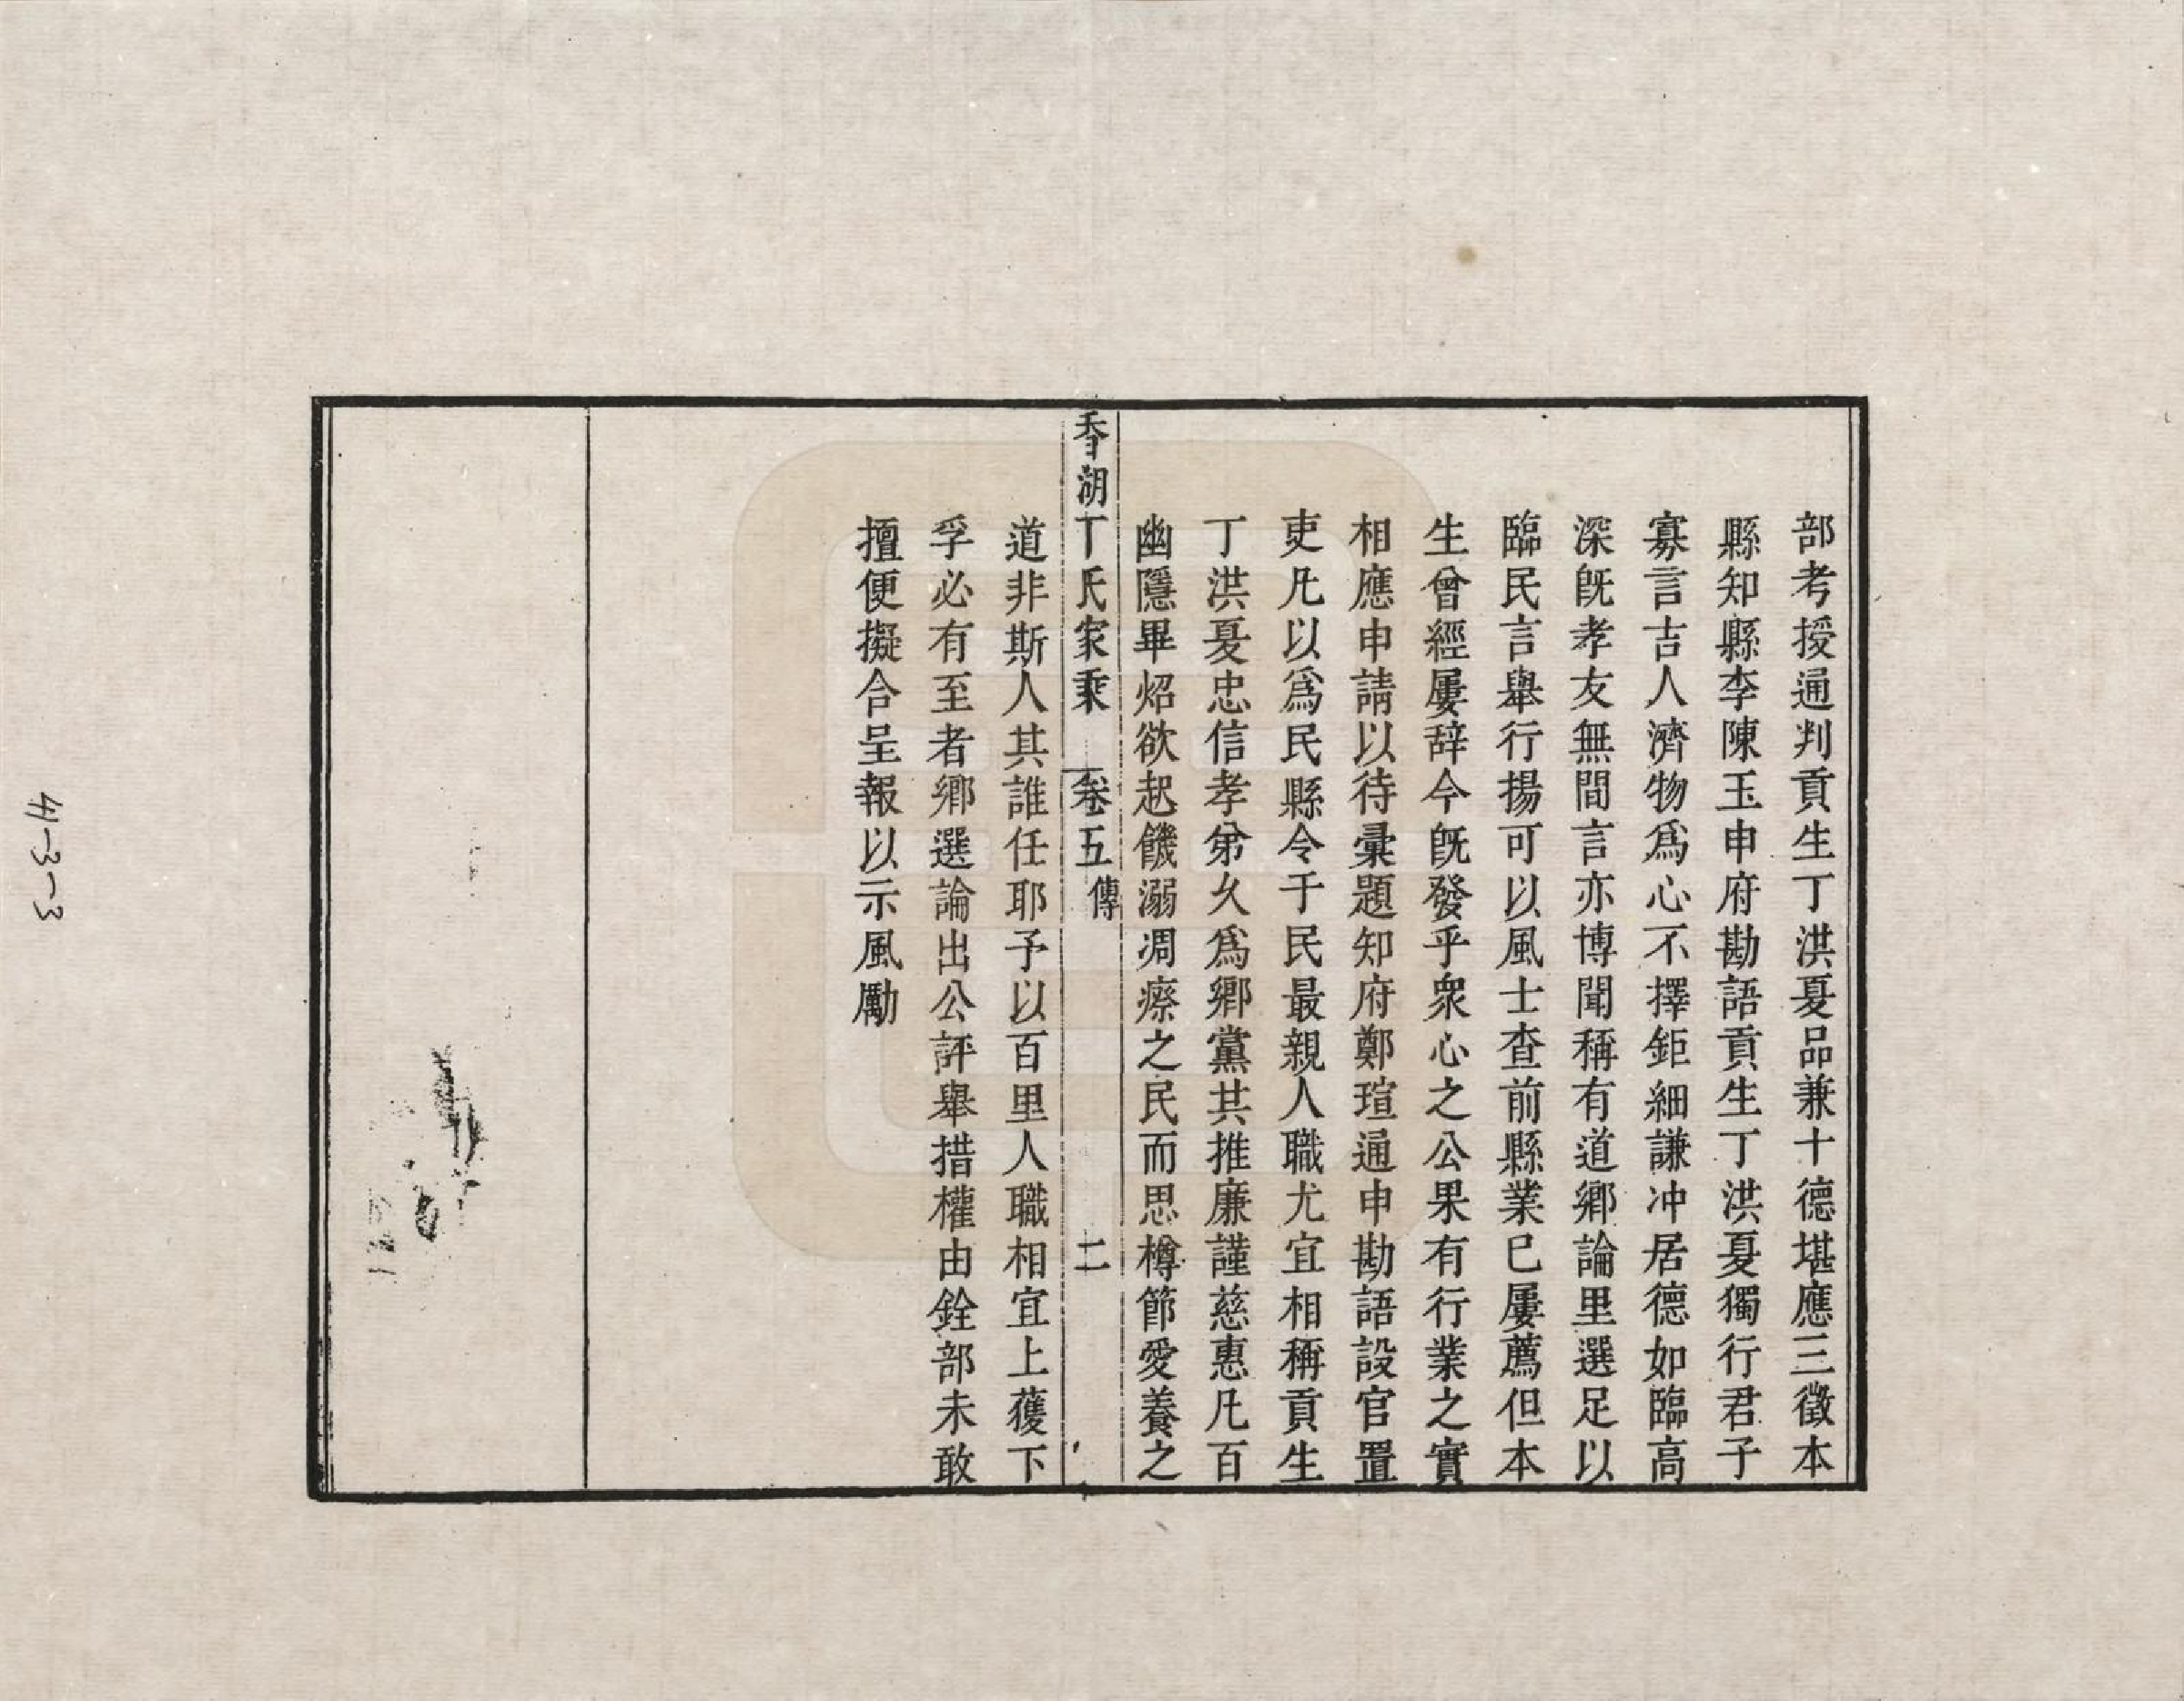 部考授通判貢生丁洪夏品兼十德堪應三徵本
縣知縣李陳玉申府勘語貢生丁洪夏獨行君子
寡言古人濟物爲心不擇鉅細謙冲居德如臨高
深旣孝友無間言亦博聞稱有道鄉論里選足以
臨民言舉行揚可以風士查前縣業已屢薦但本
生曾經屢辭今旣發乎衆心之公果有行業之實
相應申請以待彙題知府鄭瑄通申勘語設官置
吏凡以爲民縣令于民最親人職尤宜相稱貢生
丁洪夏忠信孝弟久爲鄉黨共推廉謹慈惠凡百
幽隱畢炤欲起饑溺凋瘵之民而思樽節愛養之
香湖丁氏家乘 卷五 傳 二
道非斯人其誰任耶予以百里人職相宜上獲下
孚必有至者鄉選論出公評舉措權由銓部未敢
擅便擬合呈報以示風勵
4-3-3